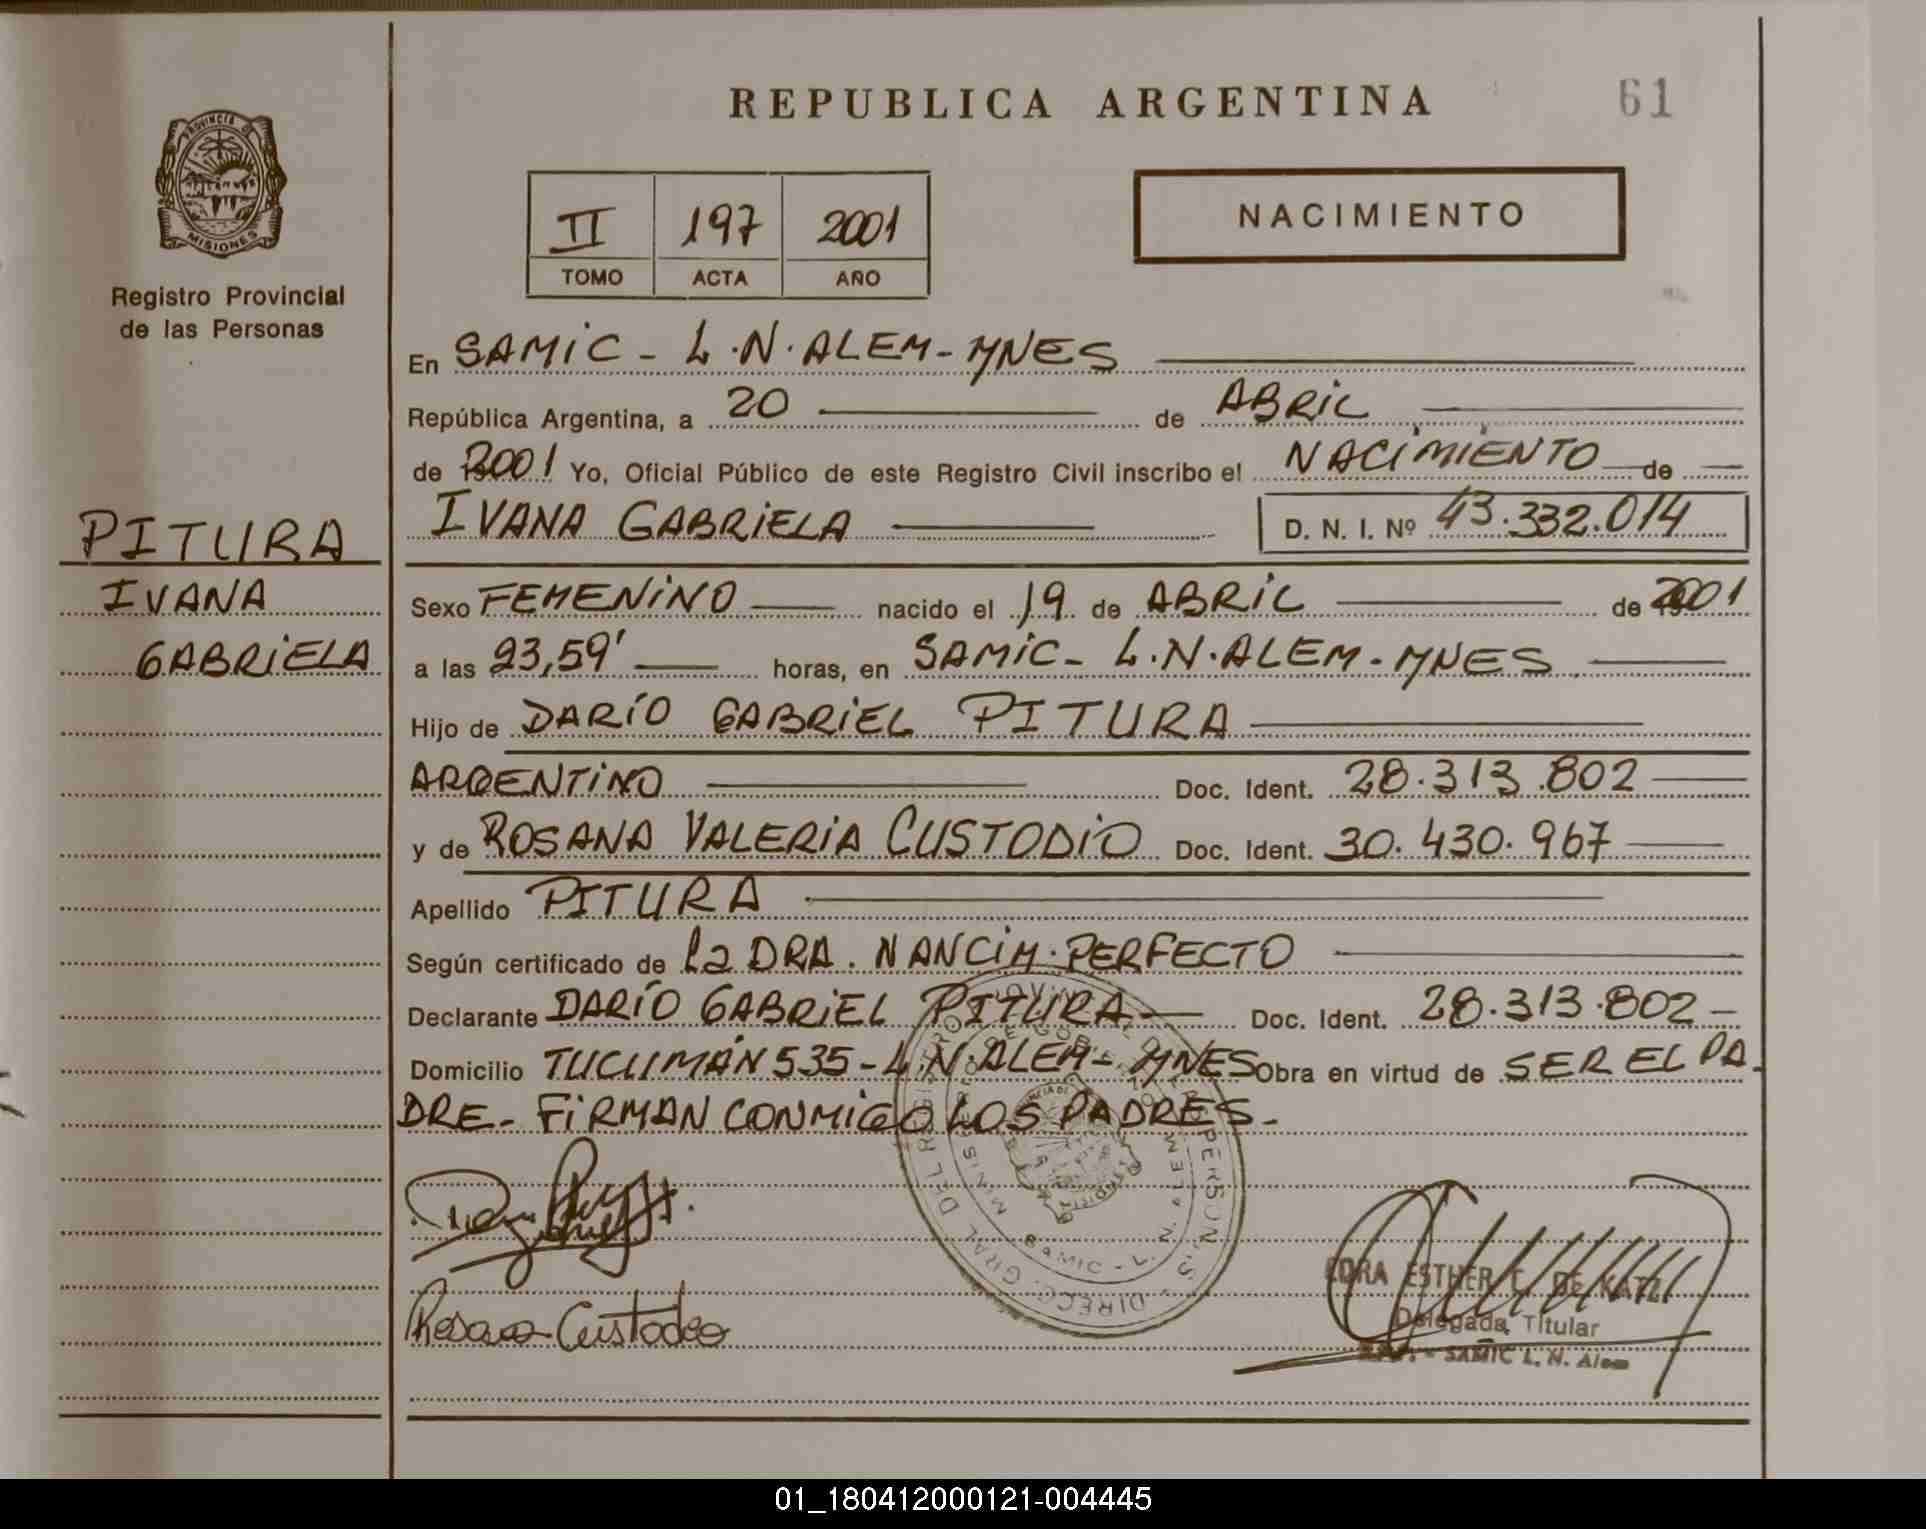 REPUBLICA ARGENTINA
61
PROVINCIA DE
MISIONES
Registro Provincial
de las Personas
II 197 2001
TOMO ACTA AÑO
NACIMIENTO
En SAMIC - L.N.ALEM - MNES
República Argentina, a 20 de ABRIL
de 2001 Yo, Oficial Público de este Registro Civil inscribo el NACIMIENTO de
IVANA GABRIELA D. N. I. Nº 43.332.014
PITURA
IVANA
GABRIELA
Sexo FEMENINO nacido el 19 de ABRIL de 2001
a las 23,59' horas, en SAMIC - L.N.ALEM - MNES
Hijo de DARÍO GABRIEL PITURA
ARGENTINO Doc. Ident. 28.313.802
y de ROSANA VALERIA CUSTODIO Doc. Ident. 30.430.967
Apellido PITURA
Según certificado de La DRA. NANCI M. PERFECTO
Declarante DARÍO GABRIEL PITURA Doc. Ident. 28.313.802
Domicilio TUCUMÁN 535 - L.N.ALEM - MNES Obra en virtud de SER EL PA-
DRE - FIRMAN CONMIGO LOS PADRES -
Rosana Custodio
ESTHER DE KATZ
Delegada Titular
SAMIC L. N. Alem
01_180412000121-004445